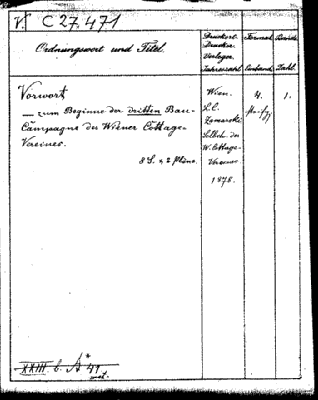 V. C 27.471
Ordnungswort und Titel.
Druckort.
Drucker.
Verleger.
Jahreszahl.
Format.
Einband.
Bände.
Zahl.
Vorwort
— zum Beginne der dritten Bau-
Campagne des Wiener Cottage-
Vereines.
8 S. 2 Pläne.
Wien.
L. C.
Zamarski.
Selbstv. des
W. Cottage-
Vereines
1875.
4.
1.
XXIII. b. A* 41